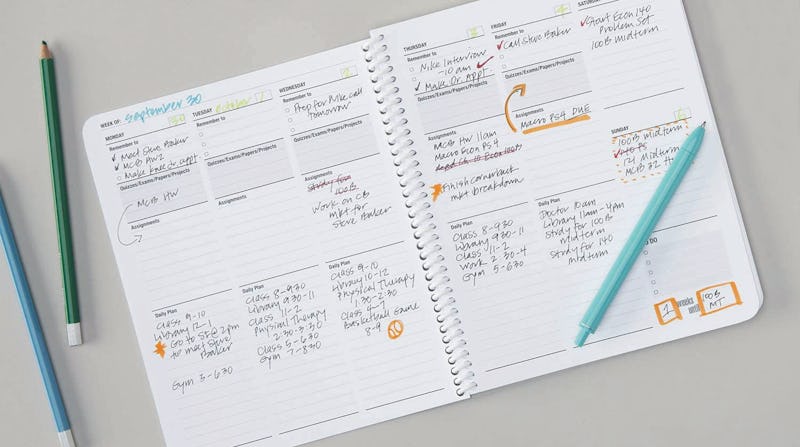 WEEK OF: September 30
MONDAY 30
Remember to
Meet Steve Baker
MCB HW2
Make knee appt
Quizzes/Exams/Papers/Projects
MCB HW
Assignments
Daily Plan
Class 9-10
Library 12-1
Go to SEQ 2pm
to meet Steve
Baker
Gym 5-630
TUESDAY October 1
Remember to
Quizzes/Exams/Papers/Projects
Assignments
Daily Plan
Class 8-930
Library 930-11
Class 11-2
Physical Therapy
2:30-3:30
Class 5-630
Gym 7-830
WEDNESDAY 2
Remember to
Prep for Nike call
tomorrow
Quizzes/Exams/Papers/Projects
Assignments
Study for
100B
Work on CB
mkt for
Steve Baker
Daily Plan
Class 9-10
Library 10-12
Physical Therapy
1:30-2:30
Class 4-7
Basketball Game
8-9
THURSDAY 3
Remember to
Nike Interview
-10 am
Make Dr. appt
Quizzes/Exams/Papers/Projects
Assignments
MCB HW 11am
Macro Econ PS4
Read Ch. 18 Econ 100B
Finish cornerback
mkt breakdown
Daily Plan
Class 8-930
Library 930-11
Class 11-2
Work 2:30-4
Gym 5-630
FRIDAY 4
Remember to
Call Steve Baker
Quizzes/Exams/Papers/Projects
Assignments
Macro PS4 DUE
Daily Plan
Doctor 10am
Library 11am-4pm
Study for 100B
midterm
Study for 140
midterm
SATURDAY
Start Econ 140
Problem Set
100B midterm
SUNDAY 6
100B midterm
140 PS
121 Midterm
MCB 32 H
TO DO
1 weeks
until
100B
MT